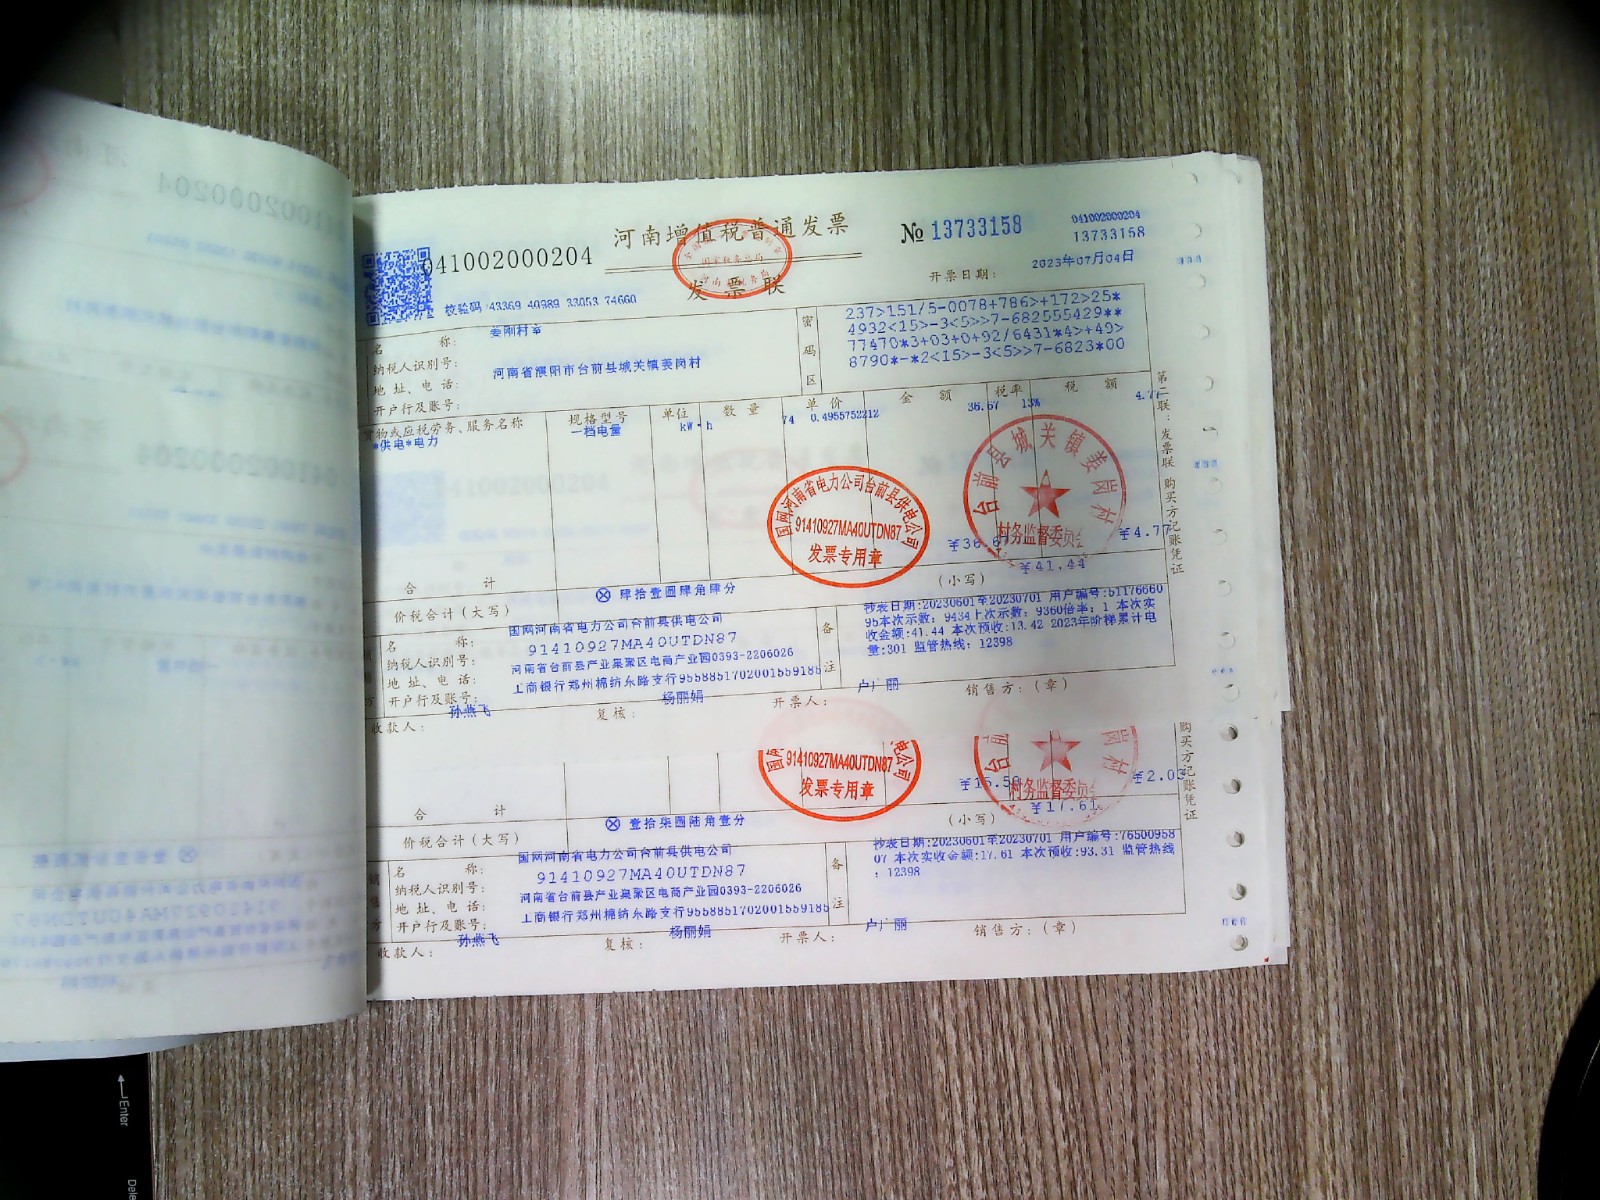 河南增值税普通发票
发票联
041002000204
№ 13733158
041002000204
13733158
校验码 43369 40989 33053 74660
开票日期: 2023年07月04日
名 称: 娄刚村室
纳税人识别号:
地 址、电 话: 河南省濮阳市台前县城关镇娄岗村
开户行及账号:
密码区
237>151/5-0078+786>+172>25*
4932<15>-3<5>>7-682555429**
77470*3+03+0+92/6431*4>+49>
8790*-*2<15>-3<5>>7-6823*00
货物或应税劳务、服务名称 规格型号 单位 数 量 单 价 金 额 税率 税 额
*供电*电力 一档电量 kW·h 74 0.4955752212 36.67 13% 4.77
第二联:发票联 购买方记账凭证
国网河南省电力公司台前县供电公司
91410927MA40UTDN87
发票专用章
台前县城关镇娄岗村
村务监督委员会
合 计 ¥36.67 ¥4.77
价税合计(大写) ⊗ 肆拾壹圆肆角肆分 (小写) ¥41.44
名 称: 国网河南省电力公司台前县供电公司
纳税人识别号: 91410927MA40UTDN87
地 址、电 话: 河南省台前县产业集聚区电商产业园0393-2206026
开户行及账号: 工商银行郑州棉纺东路支行9558851702001559185
备注
抄表日期:20230601至20230701 用户编号:51176660
95本次示数: 9434上次示数: 9360倍率: 1 本次实
收金额:41.44 本次预收:13.42 2023年阶梯累计电
量:301 监管热线: 12398
收款人: 孙燕飞 复核: 杨丽娟 开票人: 卢广丽 销售方:(章)
91410927MA40UTDN87
发票专用章
村务监督委员会
购买方记账凭证
合 计 ¥15.58 ¥2.03
价税合计(大写) ⊗ 壹拾柒圆陆角壹分 (小写) ¥17.61
名 称: 国网河南省电力公司台前县供电公司
纳税人识别号: 91410927MA40UTDN87
地 址、电 话: 河南省台前县产业集聚区电商产业园0393-2206026
开户行及账号: 工商银行郑州棉纺东路支行9558851702001559185
备注
抄表日期:20230601至20230701 用户编号:76500958
07 本次实收金额:17.61 本次预收:93.31 监管热线
: 12398
收款人: 孙燕飞 复核: 杨丽娟 开票人: 卢广丽 销售方:(章)
Enter